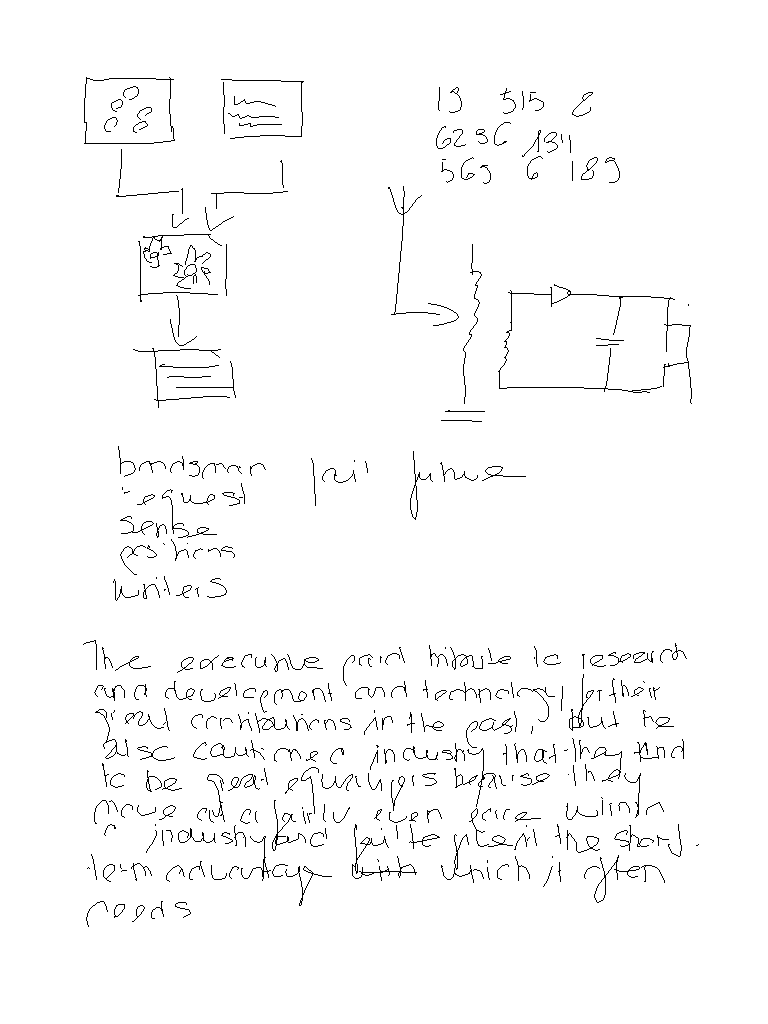 13 515 8
6236 134
569 6 189
bondsman fail future
request
sense
positions
writers
The executive paid tribute to research
and development and technology for their
great contributions in the past, but he
also cautioned industry that they tend
to be great equalizers because they
move at a fairly even pace within
a industry and fail to present the short
term advantage with which it often
needs